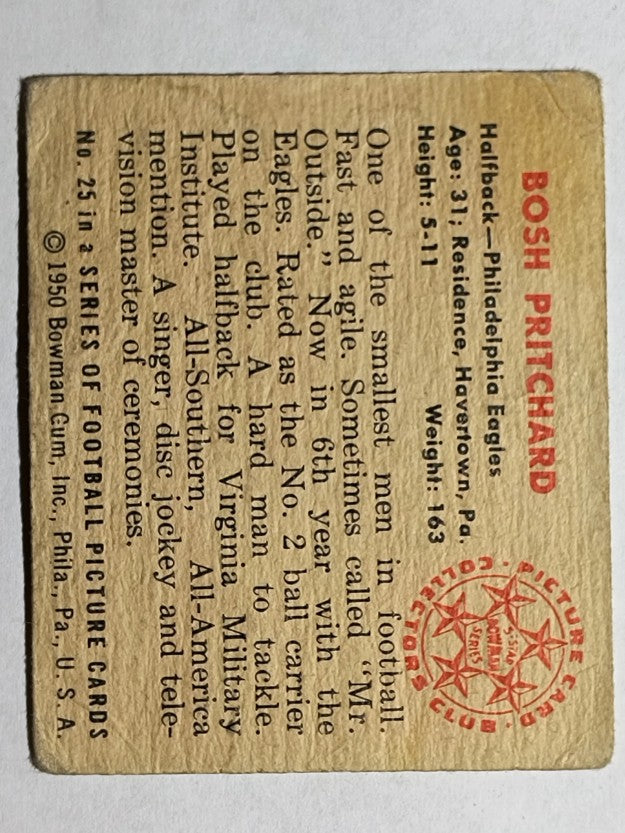 BOSH PRITCHARD
Halfback—Philadelphia Eagles
Age: 31; Residence, Havertown, Pa.
Height: 5-11 Weight: 163
One of the smallest men in football.
Fast and agile. Sometimes called “Mr.
Outside.” Now in 6th year with the
Eagles. Rated as the No. 2 ball carrier
on the club. A hard man to tackle.
Played halfback for Virginia Military
Institute. All-Southern, All-America
mention. A singer, disc jockey and tele-
vision master of ceremonies.
No. 25 in a SERIES OF FOOTBALL PICTURE CARDS
© 1950 Bowman Gum, Inc., Phila., Pa., U. S. A.
PICTURE CARD · COLLECTORS CLUB ·
5-STAR
BOWMAN
SERIES